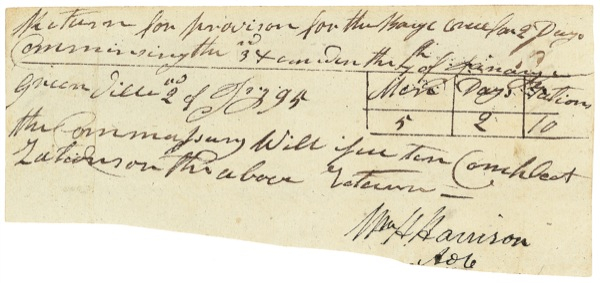 Return for provison for the Barge Crue for 2 Days
Commensing the 3rd & enden the 4th of Jinary
Green Ville 2nd of Jry 95
Men Days Rations
5 2 10
the Commassary Will isue ten Compleet
Rations on the above Return —
Wm H Harrison
ADC